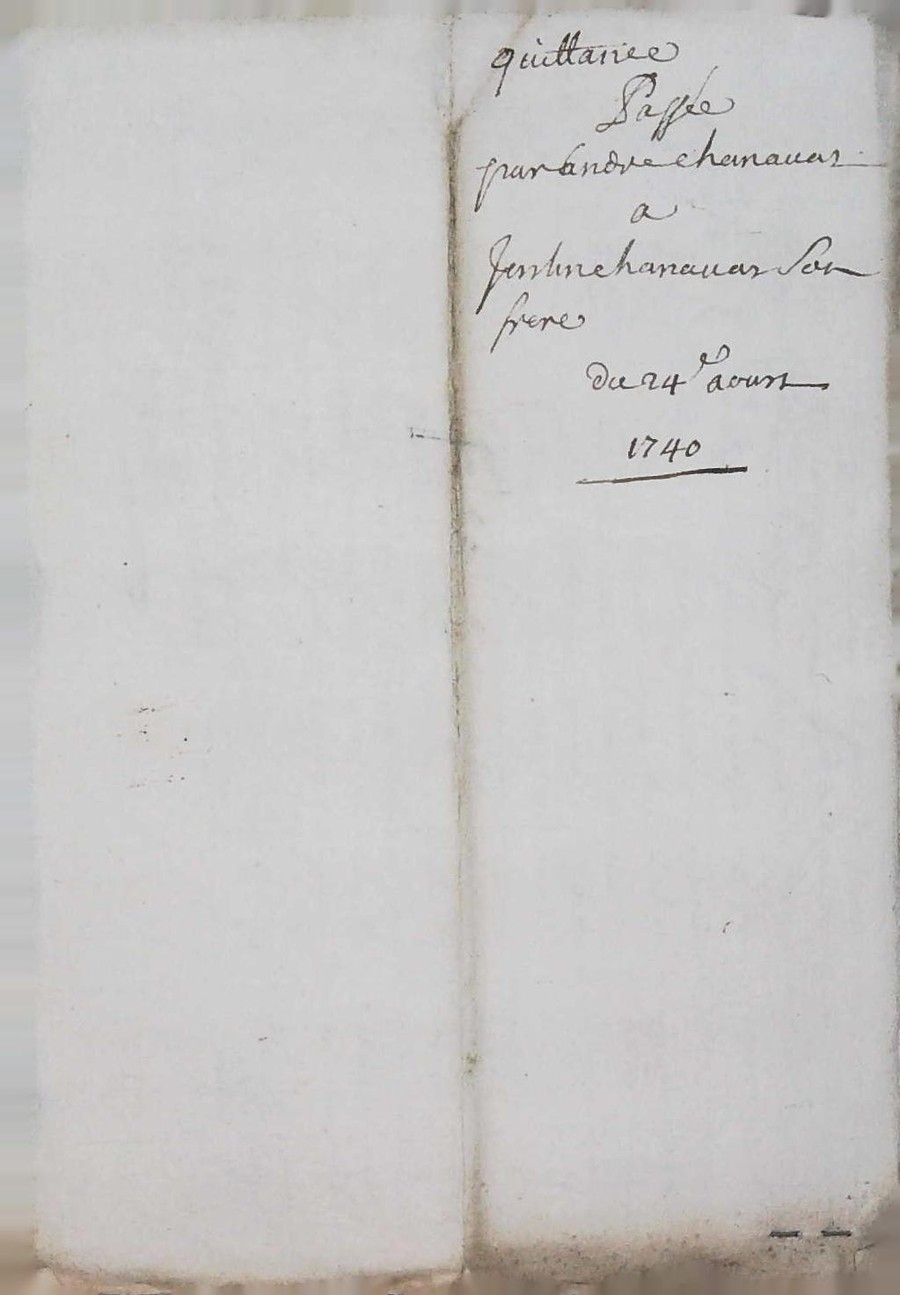 quittance
Passée
par andre chanauat
a
chanauat Son
frere
du 24e aoust
1740